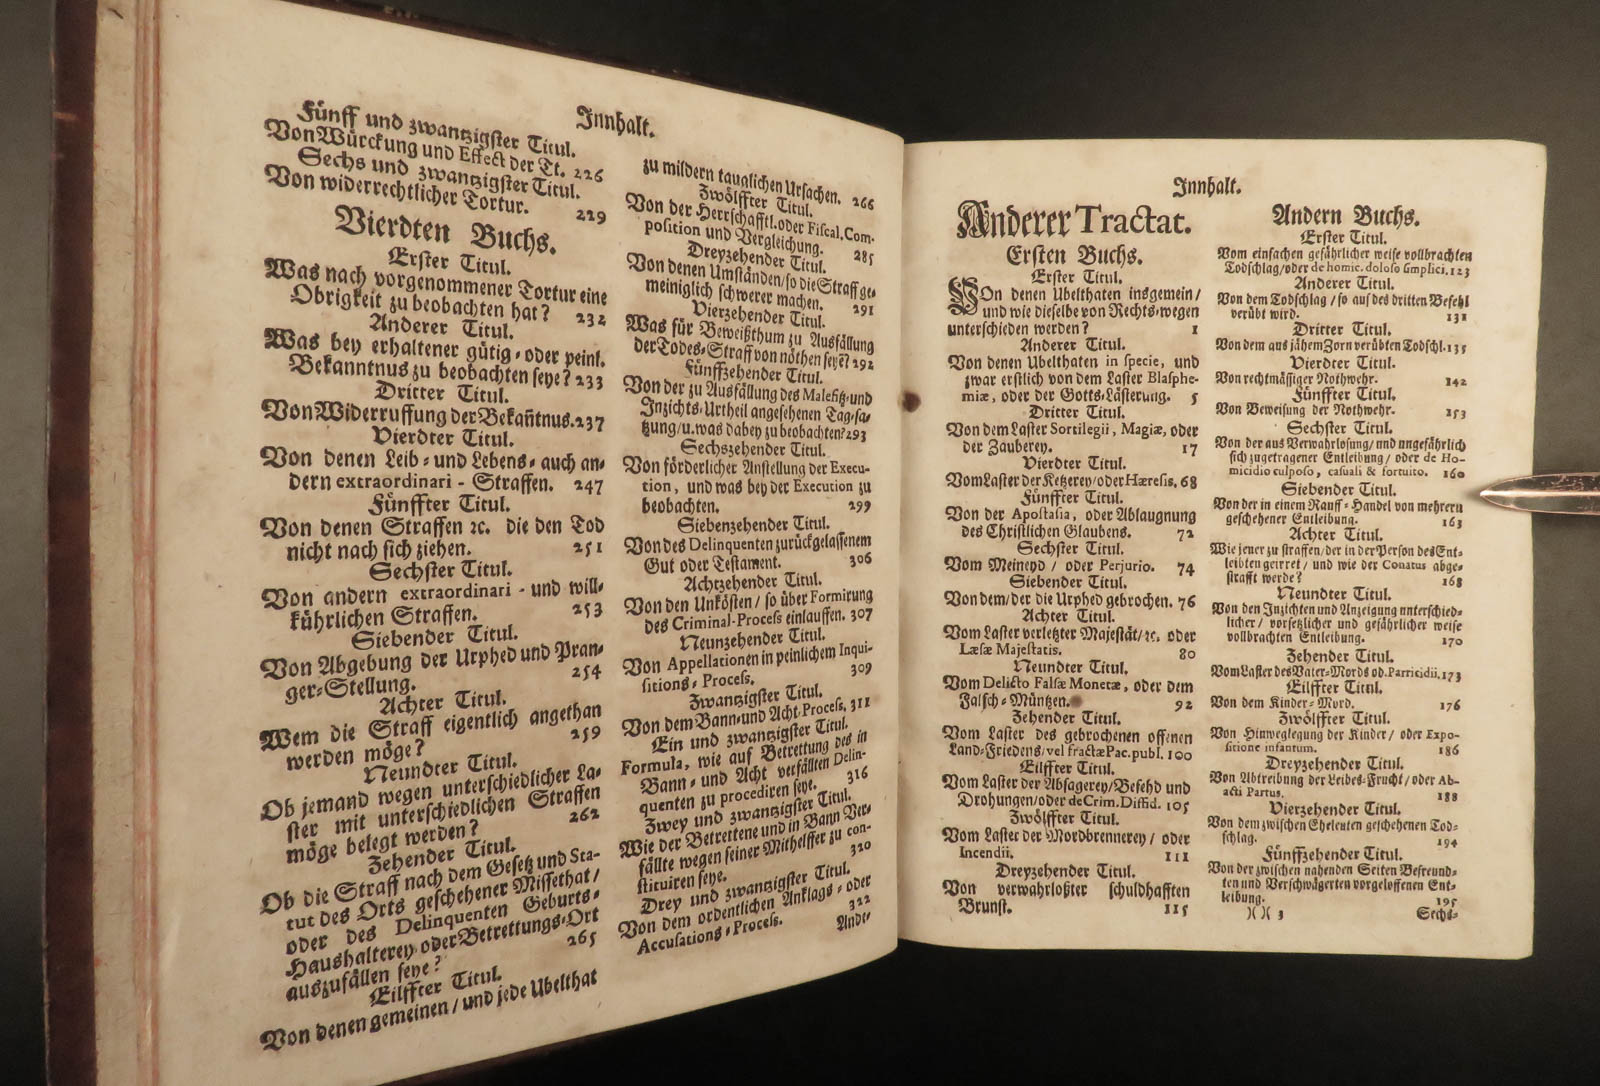 Innhalt.
Fünff und zwantzigster Titul.
Von Würckung und Effect der Tt. 226
Sechs und zwantzigster Titul.
Von widerrechtlicher Tortur. 229
Vierdten Buchs.
Erster Titul.
Was nach vorgenommener Tortur eine
Obrigkeit zu beobachten hat? 232
Anderer Titul.
Was bey erhaltener gütig- oder peinl.
Bekanntnus zu beobachten seye? 233
Dritter Titul.
Von Widerruffung der Bekañtnus. 237
Vierdter Titul.
Von denen Leib- und Lebens- auch an-
dern extraordinari - Straffen. 247
Fünffter Titul.
Von denen Straffen ꝛc. die den Tod
nicht nach sich ziehen. 251
Sechster Titul.
Von andern extraordinari - und will-
kührlichen Straffen. 253
Siebender Titul.
Von Abgebung der Urphed und Pran-
ger-Stellung. 254
Achter Titul.
Wem die Straff eigentlich angethan
werden möge? 259
Neundter Titul.
Ob jemand wegen unterschiedlicher La-
ster mit unterschiedlichen Straffen
möge belegt werden? 262
Zehender Titul.
Ob die Straff nach dem Gesetz und Sta-
tut des Orts geschehener Missethat/
oder des Delinquenten Geburts-
Haushalterey oder Betrettungs-Ort
auszufällen seye? 265
Eilffter Titul.
Von denen gemeinen/ und jede Ubelthat
zu mildern tauglichen Ursachen. 266
Zwölffter Titul.
Von der Herrschafftl. oder Fiscal, Com-
position und Vergleichung. 285
Dreyzehender Titul.
Von denen Umständen/ so die Straff ge-
meiniglich schwerer machen. 291
Vierzehender Titul.
Was für Beweißthum zu Ausfällung
der Todes-Straff von nöthen seye? 292
Fünffzehender Titul.
Von der zu Ausfällung des Malefitz- und
Inzichts-Urtheil angesehenen Tag-sa-
tzung/ u. was dabey zu beobachten? 293
Sechszehender Titul.
Von förderlicher Anstellung der Execu-
tion, und was bey der Execution zu
beobachten. 299
Siebenzehender Titul.
Von des Delinquenten zurückgelassenem
Gut oder Testament. 306
Achtzehender Titul.
Von den Unkösten/ so über Formirung
des Criminal-Process einlauffen. 307
Neunzehender Titul.
Von Appellationen in peinlichem Inqui-
sitions- Process. 309
Zwanzigster Titul.
Von dem Bann- und Acht-Process. 311
Ein und zwanzigster Titul.
Formula, wie auf Betrettung des in
Bann- und Acht verfällten Delin-
quenten zu procediren seye. 316
Zwey und zwanzigster Titul.
Wie der Betrettene und in Bann Ver-
fällte wegen seiner Mithelffer zu con-
stituiren seye. 320
Drey und zwanzigster Titul.
Von dem ordentlichen Anklags- oder
Accusations- Process. 322
Ande-
Innhalt.
Anderer Tractat.
Ersten Buchs.
Erster Titul.
VOn denen Ubelthaten insgemein/
und wie dieselbe von Rechts-wegen
unterschieden werden? 1
Anderer Titul.
Von denen Ubelthaten in specie, und
zwar erstlich von dem Laster Blasphe-
miæ, oder der Gotts-Lästerung. 5
Dritter Titul.
Von dem Laster Sortilegii, Magiæ, oder
der Zauberey. 17
Vierdter Titul.
Vom Laster der Ketzerey/ oder Hæresis. 68
Fünffter Titul.
Von der Apostasia, oder Ablaugnung
des Christlichen Glaubens. 72
Sechster Titul.
Vom Meineyd/ oder Perjurio. 74
Siebender Titul.
Von dem/ der die Urphed gebrochen. 76
Achter Titul.
Vom Laster verletzter Majestät/ ꝛc. oder
Læsæ Majestatis. 80
Neundter Titul.
Vom Delicto Falsæ Monetæ, oder dem
Falsch-Müntzen. 92
Zehender Titul.
Vom Laster des gebrochenen offenen
Land-Friedens/ vel fractæ Pac. publ. 100
Eilffter Titul.
Vom Laster der Absagerey/ Befehd und
Drohungen/ oder de Crim. Diffid. 105
Zwölffter Titul.
Vom Laster der Mordbrennerey/ oder
Incendii. 111
Dreyzehender Titul.
Von verwahrloßter schuldhafften
Brunst. 115
Andern Buchs.
Erster Titul.
Vom einfachen gefährlicher weise vollbrachten
Todschlag/ oder de homic. doloso simplici. 123
Anderer Titul.
Von dem Todschlag/ so aus des dritten Befehl
verübt wird. 131
Dritter Titul.
Von dem aus jähem Zorn verübten Todschl. 135
Vierdter Titul.
Von rechtmässiger Nothwehr. 142
Fünffter Titul.
Von Beweisung der Nothwehr. 153
Sechster Titul.
Von der aus Verwahrlosung/ und ungefährlich
sich zugetragener Entleibung/ oder de Ho-
micidio culposo, casuali & fortuito. 160
Siebender Titul.
Von der in einem Rauff-Handel von mehrern
geschehener Entleibung. 163
Achter Titul.
Wie jener zu straffen/ der in der Person des Ent-
leibten geirret/ und wie der Conatus abge-
strafft werde? 168
Neundter Titul.
Von den Inzichten und Anzeigung unterschied-
licher/ vorsetzlicher und gefährlicher weise
vollbrachten Entleibung. 170
Zehender Titul.
Vom Laster des Vater-Mords od. Parricidii. 173
Eilffter Titul.
Von dem Kinder-Mord. 176
Zwölffter Titul.
Von Hinweglegung der Kinder/ oder Expo-
sitione infantum. 186
Dreyzehender Titul.
Von Abtreibung der Leibes-Frucht/ oder Ab-
acti Partus. 188
Vierzehender Titul.
Von dem zwischen Eheleuten geschehenen Tod-
schlag. 194
Fünffzehender Titul.
Von der zwischen nahenden Seiten Befreund-
ten und Verschwägerten vorgeloffenen Ent-
leibung. 195
)( )( 3 Sechs-